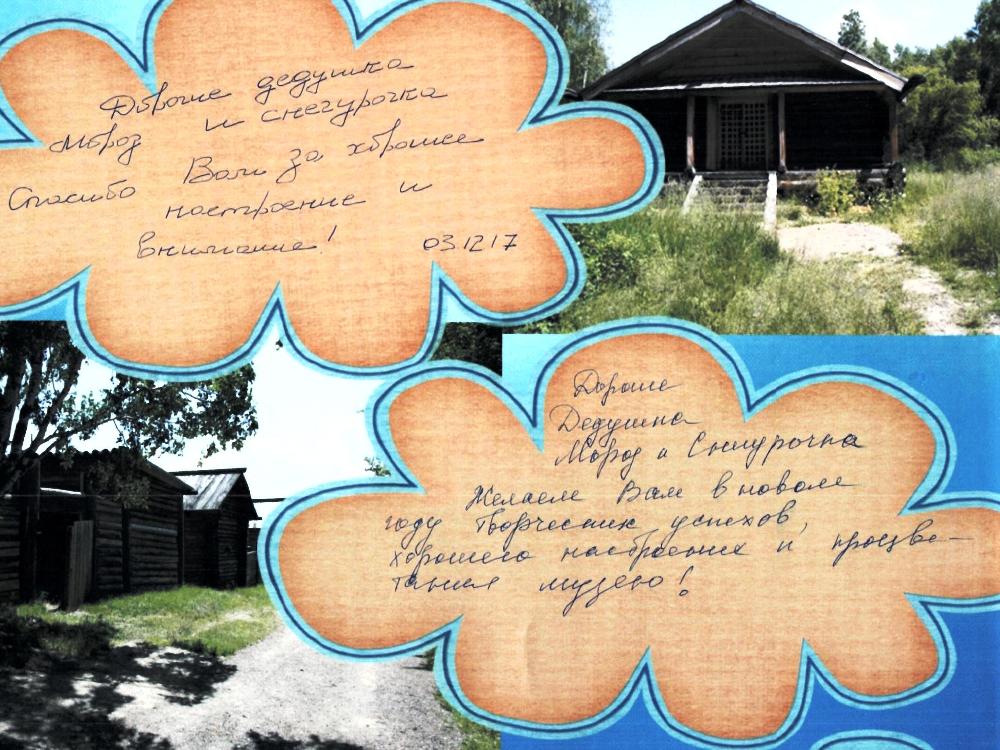 Дорогие дедушка
Мороз и снегурочка
Спасибо Вам за хорошее
настроение и
внимание! 03.12 17
Дорогие
Дедушка
Мороз и Снегурочка
Желаем Вам в новом
году творческих успехов,
хорошего настроения и процве-
тания музею!